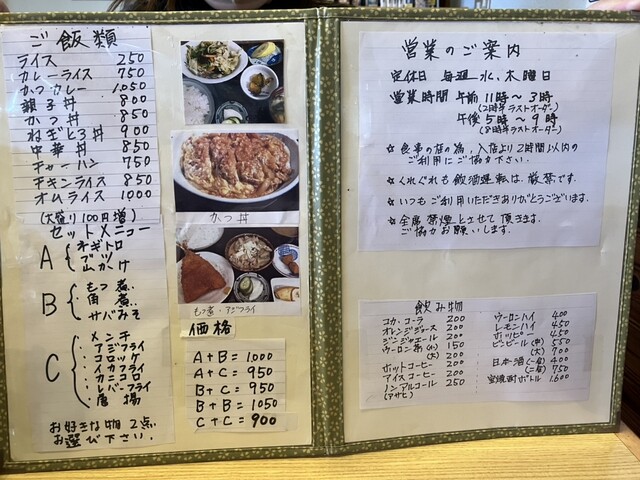 ご飯類
ライス 250
カレーライス 750
かつカレー 1,050
親子丼 800
かつ丼 850
ねぎとろ丼 900
中華丼 850
チャーハン 750
チキンライス 850
オムライス 1000
(大盛り100円増)
セットメニュー
A
ネギトロ
ブツ
山かけ
B
もつ煮
角煮
サバみそ
C
メンチ
アジフライ
コロッケ
イカフライ
カニコロ
レバーフライ
唐揚
お好きな物2点
お選び下さい。
かつ丼
もつ煮・アジフライ
価格
A+B=1,000
A+C=950
B+C=950
B+B=1050
C+C=900
営業のご案内
定休日 毎週 水、木曜日
営業時間 午前11時〜3時
(2時半ラストオーダー)
午後5時〜9時
(8時半ラストオーダー)
☆食事の店の為、入店より2時間以内の
ご利用にご協力下さい。
☆くれぐれも飲酒運転は、厳禁です。
☆いつもご利用いただきありがとうございます。
☆全席禁煙とさせて頂きます。
ご協力お願いします。
飲み物
コカ・コーラ 200
オレンジジュース 200
ジンジャエール 200
ウーロン茶(小) 150
(大) 200
ホットコーヒー 200
アイスコーヒー 200
ノンアルコール 250
(アサヒ)
ウーロンハイ 400
レモンハイ 450
ホッピー 450
ビンビール(中) 550
(大) 700
日本酒(一合) 400
(二合) 750
宝焼酎ボトル 1,600